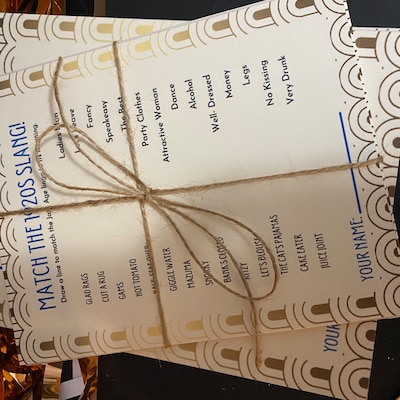 MATCH THE 1920S SLANG!
Draw a line to match the Jazz Age lingo to its meaning
GLAD RAGS
CUT A RUG
GAMS
HOT TOMATO
GIGGLE WATER
MAZUMA
SMOKEY
BANK'S CLOSED
RITZY
LET'S BLOUSE
THE CAT'S PAJAMAS
CAKE EATER
JUICE JOINT
Ladies Man
Leave
Fancy
Speakeasy
The Best
Party Clothes
Attractive Woman
Dance
Alcohol
Well-Dressed
Money
Legs
No Kissing
Very Drunk
YOUR NAME:
YOUR